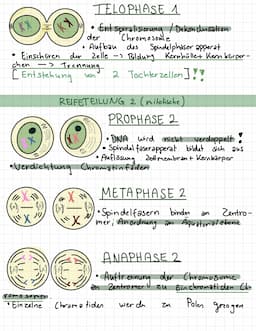 TELOPHASE 1
• Entspiralisierung / Dekondensation
der Chromosome
• Aufbau des Spindelfaserapparat
• Einschnüren der Zelle → Bildung Kernhülle + Kernkörper-
chen → Trennung
[Entstehung von 2 Tochterzellen]!!
REIFETEILUNG 2 (mitotische)
PROPHASE 2
• DNA wird nicht verdoppelt!
• Spindelfaserapparat bildet sich aus
• Auflösung Zellmembran + Kernkörper
• Verdichtung Chromatinfäden
METAPHASE 2
• Spindelfasern binden an Zentro-
mer, Anordnung an Äquatorialebene
ANAPHASE 2
• Auftrennung der Chromosome
am Zentromer zu Einchromatiden Ch
romosomen
• Einzelne Chromatiden werden zu Polen gezogen